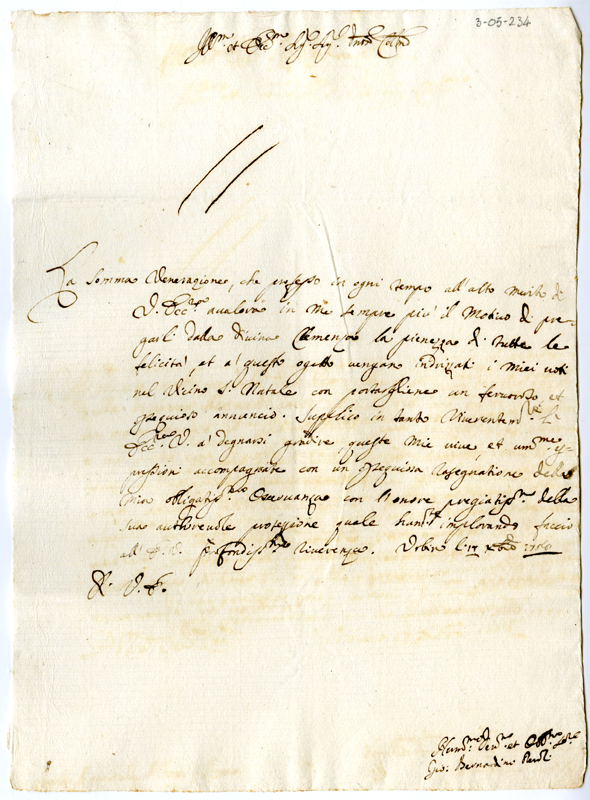 3-05-234
Ill.mo et Ecc.mo Sig.r Sig.r
La somma Veneratione, che professo in ogni tempo all'alto merito di
V. Ecc.za avalora in me sempre più il Motivo di pre-
garli dalla Divina Clemenza la pienezza di tutte le
felicità, et a questo ogetto vengano indrizzati i miei voti
nel vicino S. Natale con portargliene un fervoroso et
ossequioso annuncio. Supplico in tanto Riverentem.te l'
Ecc.za V. a degnarsi gradire queste mie vive, et um.me es-
pressioni accompagnate con un ossequiosa rasegnatione della
mia obligatis.ma Osservanza con l'honore pregiatis.mo della
sua authorevole protezione quale implorando faccio
all' E. V. profondis.ma riverenza. Urbino li 17
D. V. E.
Hum.mo Dev.mo et Obb.mo Ser.re
Gio: Bernardino